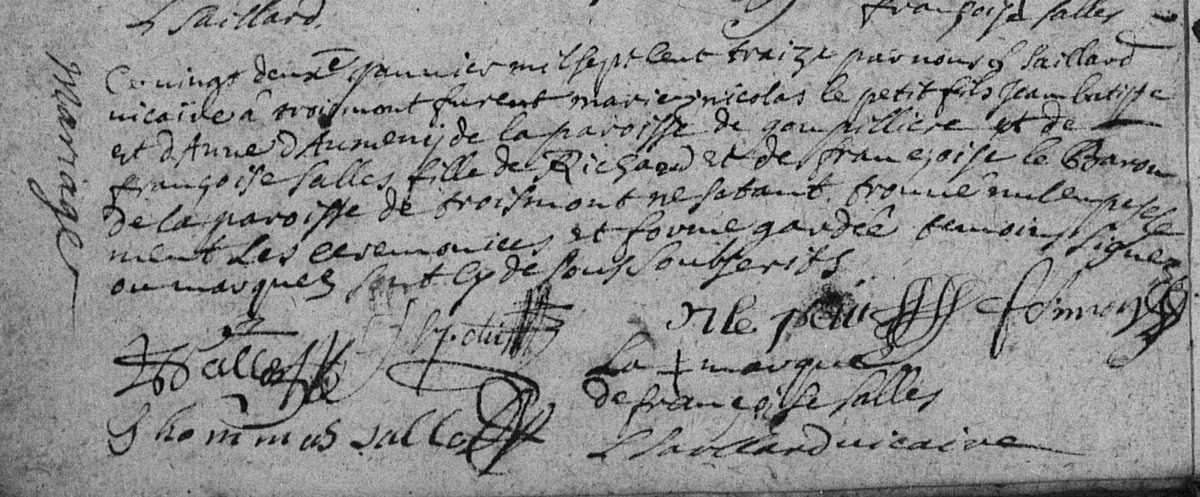 L Saillard
françoise salles
Mariage
Ce vingt deuxe janvier mil sept cent traize par nous g Saillard
vicaire a troismont furent mariez nicolas le petit fils Jean batisse
et d'Anne d'Aumenij de la paroisse de goupilliere et de
françoise salles fille de Richard et de françoise le Baron
de la paroisse de troismont ne setant trouvé nulempesche
ment Les ceremonies et forme gardée temoins signez
ou marquez sont cy de sous soubscrits
N le petit
Salles
La + marque
de françoise salles
Thommas Salles
L Saillard vicaire